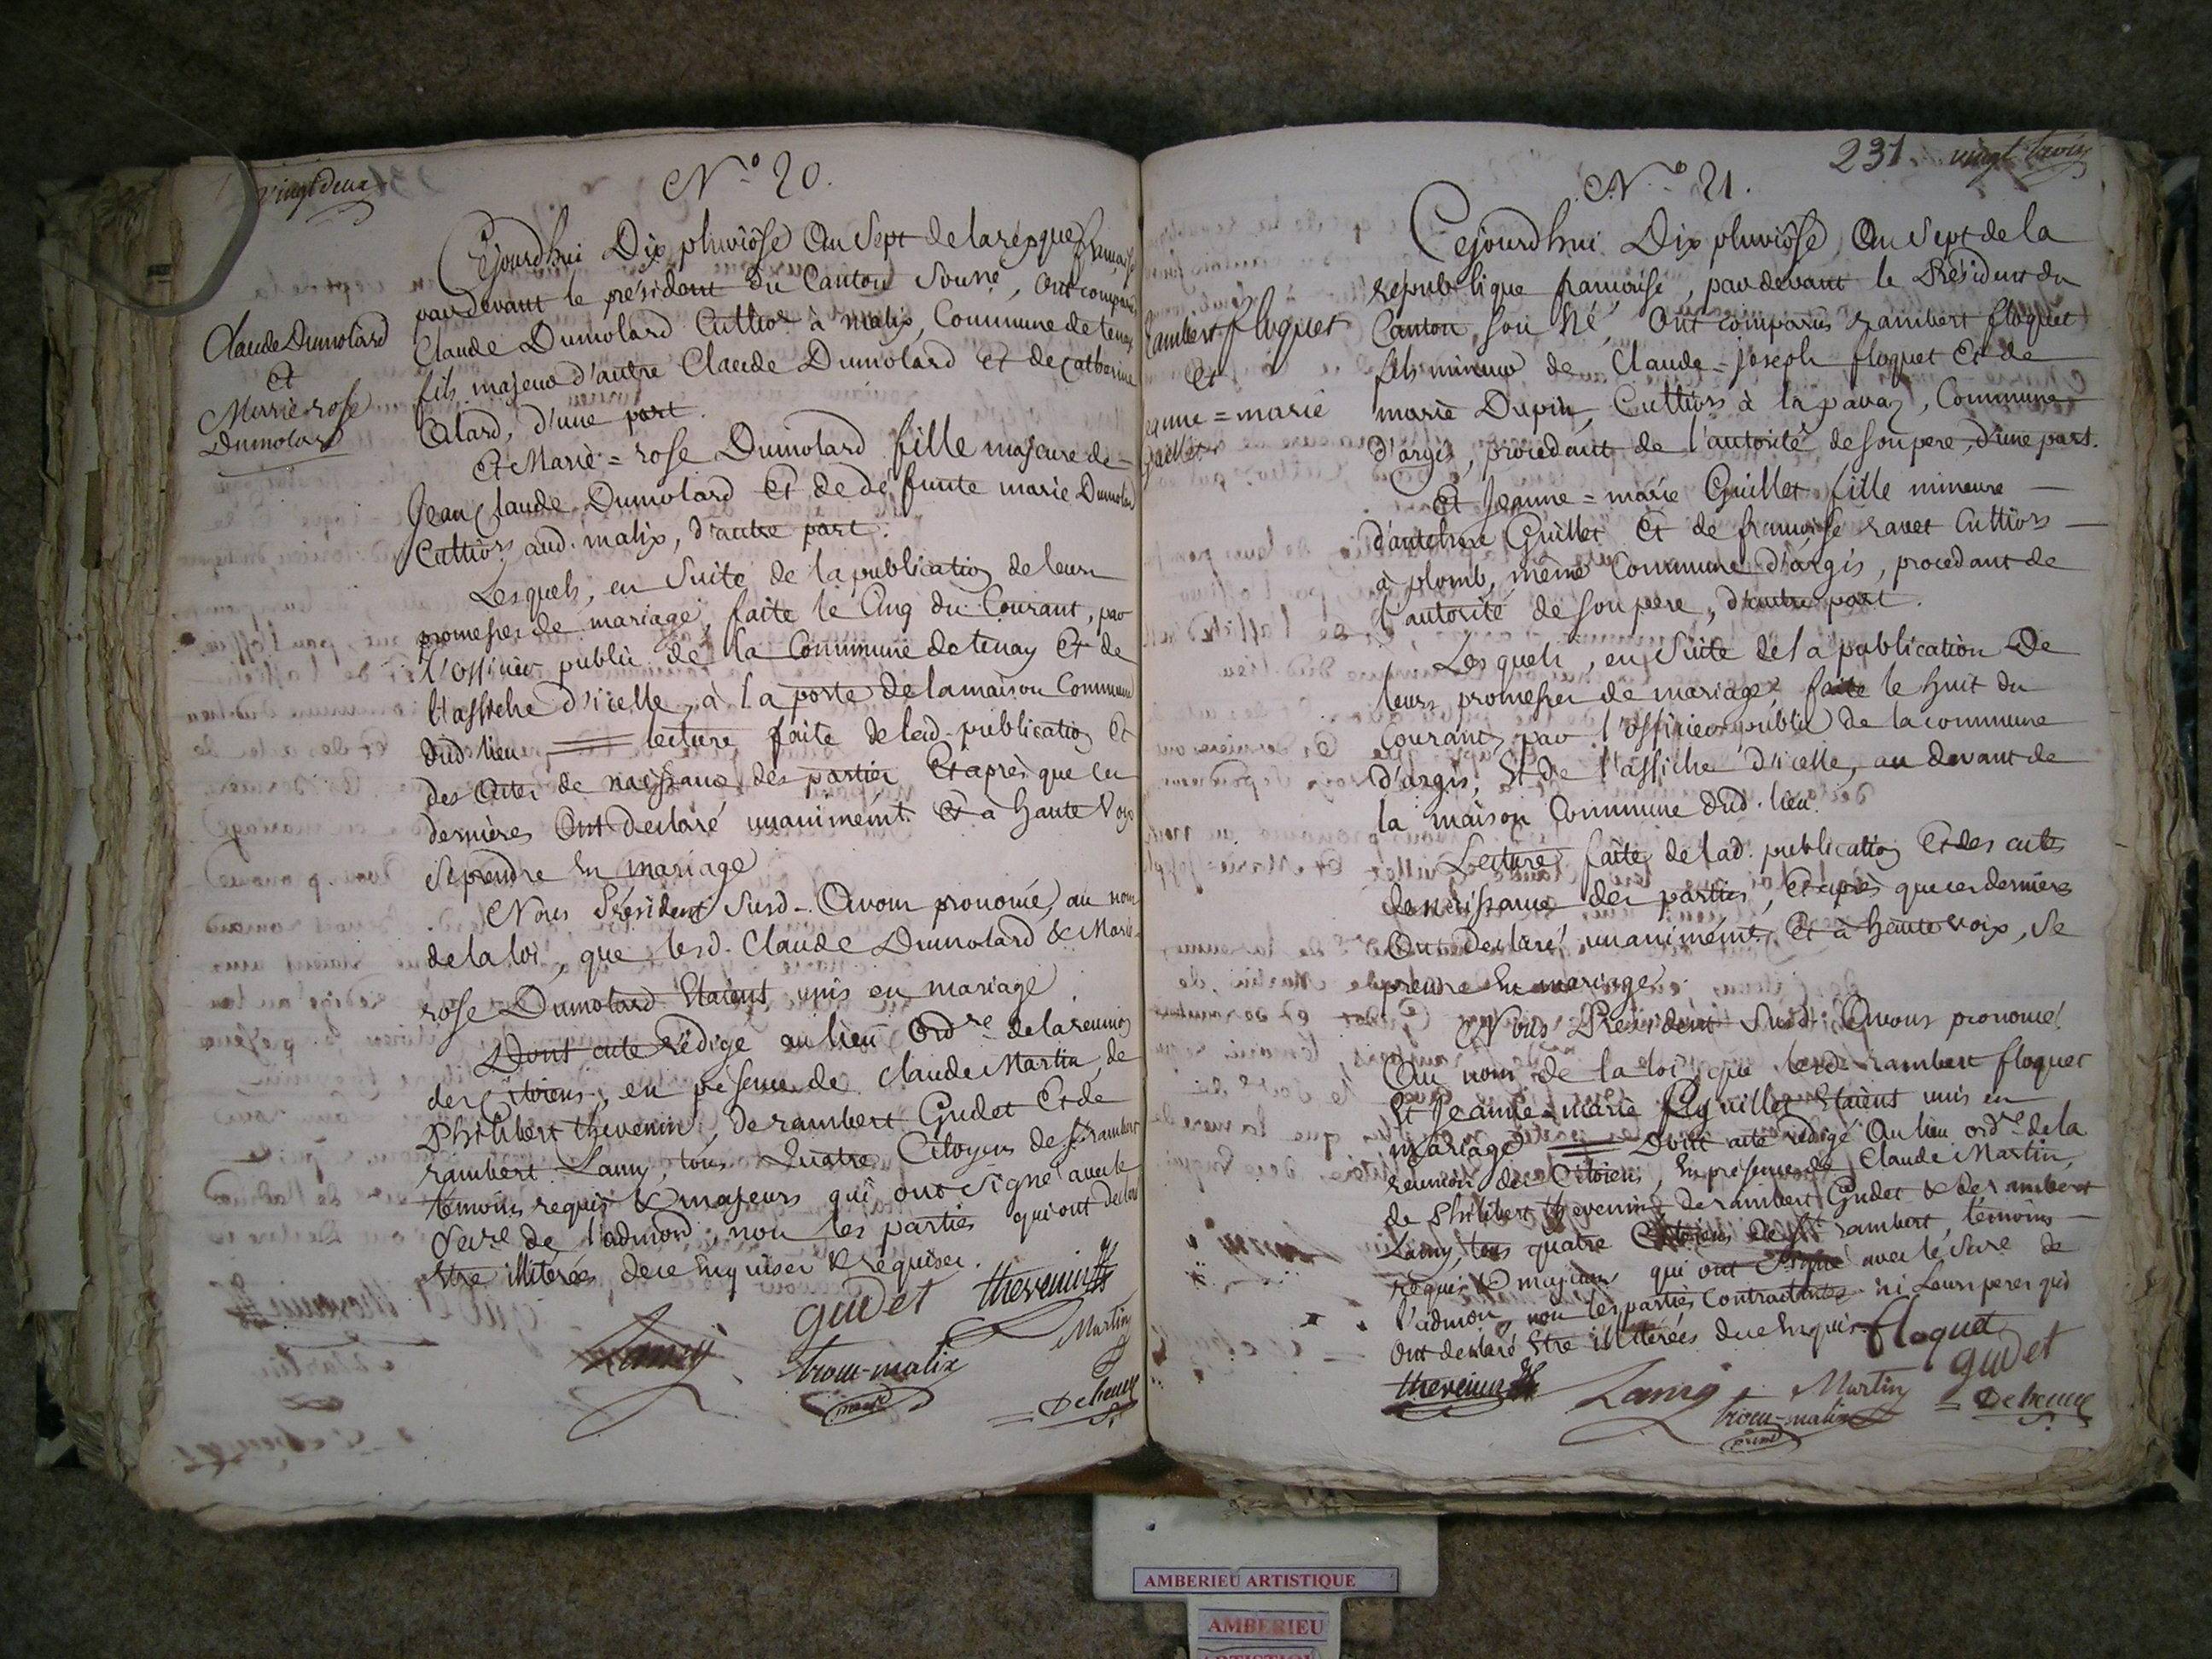 vingt deux
N.° 20.
Claude Dumolard
et
Marie rose
Dumolard
Cejourdhui Dix pluviôse An Sept de la répque française
pardevant le président du Canton Sousné, ont comparus
Claude Dumolard Cultior à malix, Commune de tenay
fils majeur d'autre Claude Dumolard et de Catherine
d'une part.
Et Marie = rose Dumolard fille majeure de
Jean Claude Dumolard Et de défunte marie Dumolard
Cultiors aud. malix, d'autre part.
Lesquels, en Suite de la publication de leurs
promesses de mariage, faite le Cinq du Courant, par
l'officier public de la Commune de tenay Et de
l'affiche d'icelle, à la porte de la maison Commune
dud. lieu = lecture faite de lad. publication Et
des Actes de naissance des parties Et après que ces
dernières Ont declaré unanimémt. Et a haute Voye
Se prendre En mariage
Nous Président Susd. Avons prononcé, au nom
de la loi, que lesd. Claude Dumolard & Marie-
rose Dumolard Etaient unis en mariage
Dont acte rédigé au lieu Ordre de la reunion
des Citoiens, en présence de Claude Martin, de
Philibert thevenin, de rambert Gudet Et de
rambert Lamy, tous Quatre Citoyens de St rambert
temoins requis & majeurs qui ont signé avec le
Secre de l'admon, non les parties qui ont declaré
Etre illiterées de ce Enquises & requises.
gudet thevenin
Lamy trocu-malix Martin
présid Debeney
231. vingt trois
N.° 21.
Rambert floquet
et
Jeanne = marie
Guillet
Cejourdhui Dix pluviôse, An Sept de la
republique française, pardevant le Président du
Canton, sousné, Ont comparus rambert floquet
fils mineur de Claude = joseph floquet Et de
marie Dupin, Cultiors à la pavaz, Commune
d'argis, procedant de l'autorité de son pere, d'une part.
Et Jeanne = marie Guillet fille mineure
d'antelme Guillet Et de françoise ravet Cultiors
à plomb, même Commune d'argis, procedant de
l'autorité de son pere, d'autre part.
Lesquels, en Suite de la publication De
leurs promesses de mariage, faite le huit du
Courant, par l'officier public de la commune
d'argis, Et de l'affiche d'icelle, au devant de
la maison Commune dud. lieu.
Lecture faite de lad. publication Et des actes
de naissance des parties, Et après que ces dernières
Ont declaré unanimémt. Et à haute voix, Se
prendre En mariage.
Nous Président Susd. Avons prononcé
Au nom de la loi, que lesd. rambert floquet
Et Jeanne = marie Guillet Etaient unis en
mariage = Dont acte rédigé Au lieu ordre de la
réunion des Citoiens, En présence de Claude Martin,
de Philibert thevenin, de rambert Gudet & de rambert
Lamy, tous quatre Citoiens de St rambert, témoins
requis & majeurs qui ont signé avec le Secre de
l'admon, non les parties Contractantes ni Leurs peres qui
Ont declaré Etre illiterées de ce Enquis. floquet
thevenin Lamy Martin gudet
trocu-malix Debeney
présid
AMBERIEU ARTISTIQUE
AMBERIEU
ARTISTIQUE